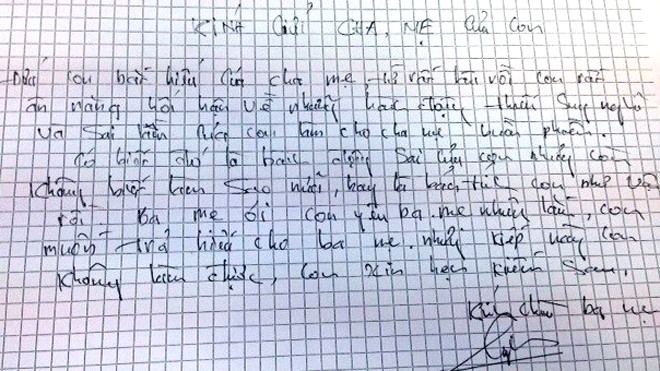 Kính Gửi CHA, MẸ Của Con
Đứa con bất hiếu của cha mẹ con rất
ăn năng hối hận về những hàc động thiếu suy nghỉ
và sai lầm của con làm cho cha mẹ buồn phiền.
Có biết đó là hàc động sai của con nhưng con
không biết làm sao nữa, hay là con như vậy
rồi. Ba mẹ ơi con yêu ba mẹ nhiều lắm, con
muốn trả hiếu cho ba mẹ. nhưng kiếp này con
không làm được, con xin hẹn kiếp sau.
Kính chào ba mẹ